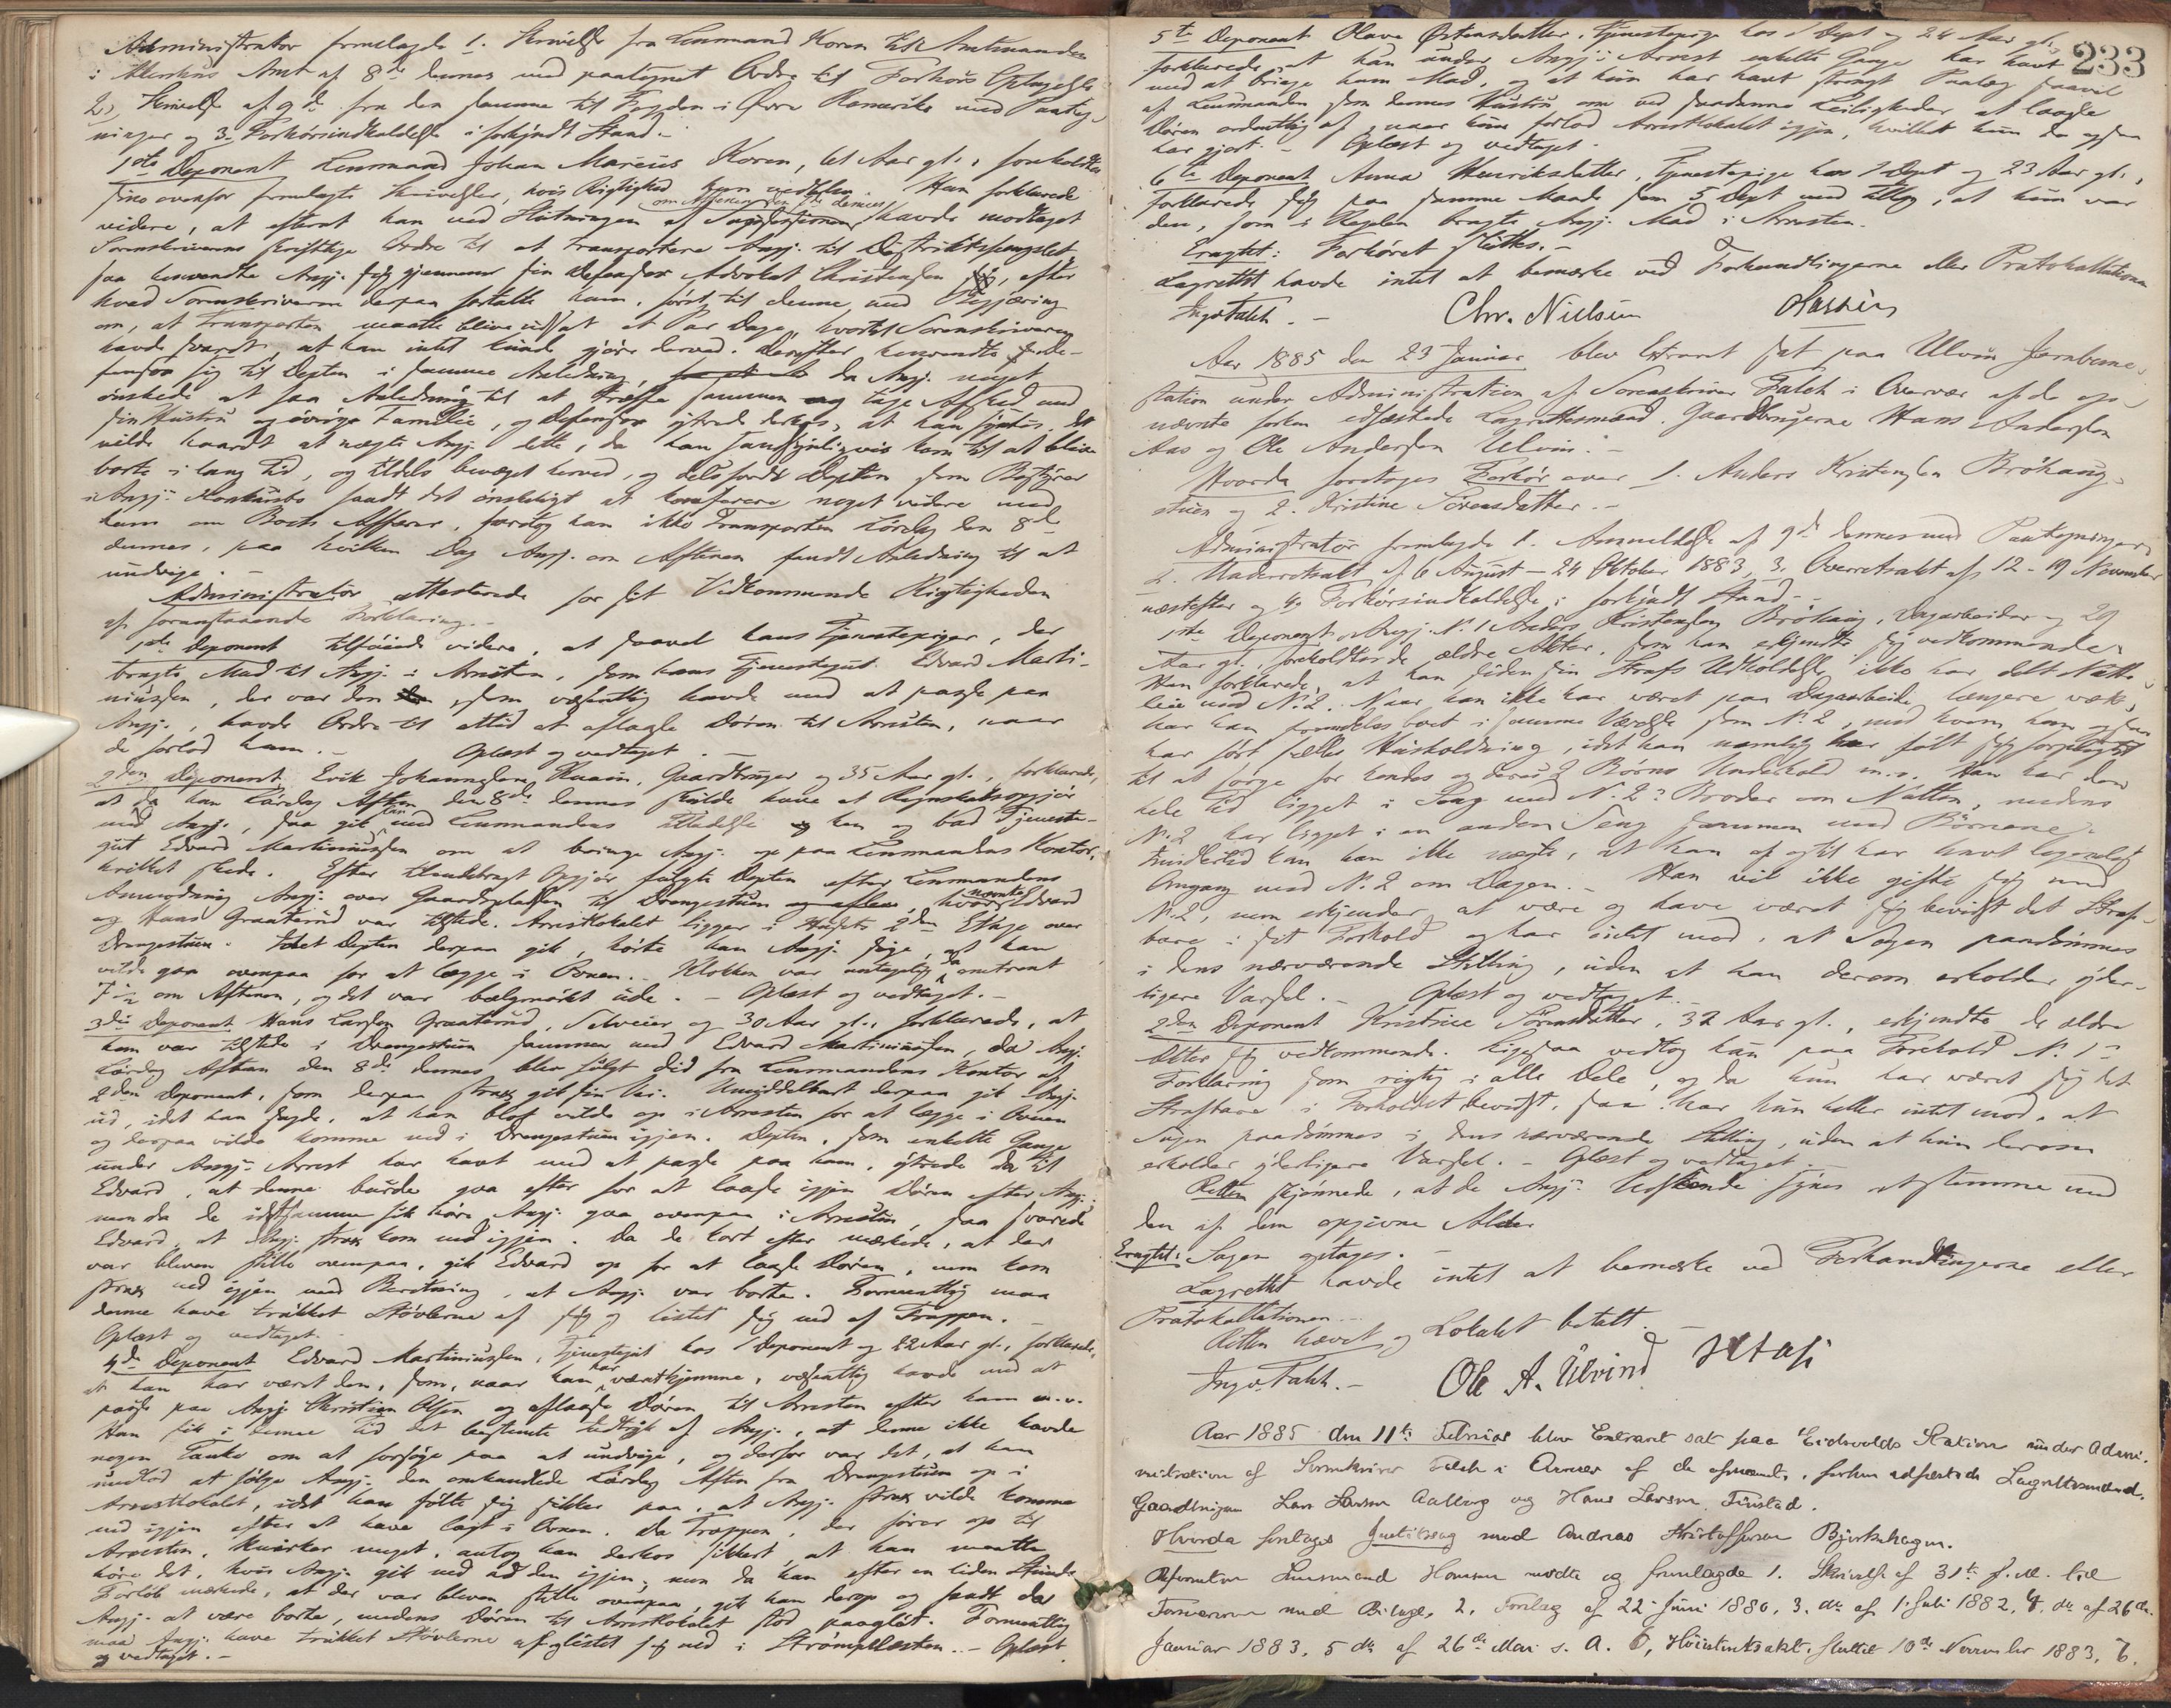 Administrator fremlagde 1. Skrivelse fra Lensmand Koren til Amtmanden
i Akershus Amt af 8de dennes med paategnet Ordre til Forhørs Optagelse
2, Skrivelse af 9de fra den samme til Fogden i Øvre Romerike med Paateg-
ninger og 3. Forhørsindkaldelse i forkyndt Stand.-
1ste Deponent Lensmand Johan Marcus Koren, 61 Aar gl., foreholdtes
sine ovenfor fremlagte Skrivelser, hvis Rigtighed han vedtog. Han forklarede
videre, at efterat han ved Slutningen af om Aftenen den dennes havde modtaget
Sorenskriverens skriftlige Ordre til at transportere Angj. til Distriktsfængslet
saa henvendte Angj. sig gjennem sin Defensor Advokat Christensen, efter
hvad Sorenskriveren derpaa fortalte ham, først til denne med Begjæring
om, at Transporten maatte blive udsat et Par Dage, hvortil Sorenskriveren
havde svaret, at han intet kunde gjøre derved. Derefter henvendte De-
fensor sig til Depten i samme Anledning, da Angj. noget
ønskede at faa Anledning til at træffe sammen og tage Afsked med
sin Hustru og øvrige Familie, og Defensor ytrede derhos, at han syntes, det
vilde haardt at nægte Angj. dette, da han sandsynligvis kom til at blive
borte i lang Tid, og tildels bevæget herved, og dels fordi Depten som Bestyrer
i Angj.s Konkursbo fandt det ønskeligt at konferere noget videre med
ham om Boets Affærer, foretog han ikke Transporten Lørdag den 8de
dennes, paa hvilken Dag Angj. om Aftenen fandt Anledning til at
undvige.-
Administrator attesterede for sit Vedkommende Rigtigheden
af foranstaaende Forklaring.-
1ste Deponent tilføiede videre, at saavel hans Tjenestepiger, der
bragte Mad til Angj. i Arresten, som hans Tjenestegut Edvard Marti-
niussen, der var den, som væsentlig havde med at passe paa
Angj., havde Ordre til altid at aflaase Døren til Arresten, naar
de forlod ham.- Oplæst og vedtaget.-
2den Deponent Erik Johannesen, Gaardbruger og 35 Aar gl., forklarede,
at da han Lørdag Aften den 8de dennes skulde have et Regnskabsopgjør
med Angj., saa gik han med Lensmandens Tilladelse hen og bad Tjeneste-
gut Edvard Martiniussen om at bringe Angj. op paa Lensmandens Kontor,
hvilket skede. Efter tilendebragt Opgjør fulgte Depten efter Lensmandens
Anmodning Angj. over Gaardspladsen til Drengestuen, hvor nævnte Edvard
og Hans Graaterud var tilstede. Arrestlokalet ligger i Husets 2den Etage over
Drengestuen. Idet Depten derpaa gik, hørte han Angj. sige, at han
vilde gaa ovenpaa for at lægge i Ovnen. Klokken var antagelig da omtrent
7½ om Aftenen, og det var bælgmørkt ude.- Oplæst og vedtaget.-
3die Deponent Hans Larsen Graaterud, Selveier og 30 Aar gl., forklarede, at
han var tilstede i Drengestuen sammen med Edvard Martiniussen, da Angj.
Lørdag Aften den 8de dennes blev fulgt did fra Lensmandens Kontor af
2den Deponent, som derpaa strax gik sin Vei. Umiddelbart derpaa gik Angj.
ud, idet han sagde, at han blot vilde op i Arresten for at lægge i Ovnen
og derpaa vilde komme ned i Drengestuen igjen. Depten, som enkelte Gange
under Angj.s Arrest har havt med at passe paa ham, ytrede da til
Edvard, at denne burde gaa efter for at laase igjen Døren efter Angj.;
men da de idetsamme fik høre Angj. gaa ovenpaa i Arresten, saa svarede
Edvard, at Angj. strax kom ned igjen. Da de kort efter mærkede, at det
var bleven stille ovenpaa, gik Edvard op for at laase Døren, men kom
strax ned igjen med Beretning, at Angj. var borte. Formentlig maa
denne have trukket Støvlerne af sig og listet sig ned af Trappen.-
Oplæst og vedtaget.-
4de Deponent Edvard Martiniussen, Tjenestegut hos 1 Deponent og 22 Aar gl., forklarede,
at han har været den, som, naar han har været hjemme, væsentlig havde med at
passe paa Angj. Christian Olsen og aflaase Døren til Arresten efter ham m.v.
Han fik i denne Tid det bestemte Indtryk af Angj., at denne ikke havde
nogen Tanke om at forsøge paa at undvige, og derfor var det, at han
undlod at følge Angj. den omhandlede Lørdag Aften fra Drengestuen op i
Arrestlokalet, idet han følte sig sikker paa, at Angj. strax vilde komme
ned igjen efter at have lagt i Ovnen. Da Trappen, der fører op til
Arresten, knirker meget, antog han derhos sikkert, at han maatte
høre det, hvis Angj. gik ned ad den igjen; men da han efter en liden Stunds
Forløb mærkede, at der var bleven stille ovenpaa, gik han derop og fandt da
Angj. at være borte, medens Døren til Arrestlokalet stod paagløt. Formentlig
maa Angj. have trukket Støvlerne af og listet sig ned i Strømpelæsten.- Oplæst
og vedtaget.-
233
5te Deponent Olava Østensdatter, Tjenestepige hos 1 Dept og 24 Aar gl.,
forklarede, at hun under Angj.s Arrest enkelte Gange har havt
med at bringe ham Mad, og at hun har havt strengt Paalæg saavel
af Lensmanden som dennes Hustru om ved saadanne Leiligheder at laase
Døren ordentlig af, naar hun forlod Arrestlokalet igjen, hvilket hun da ogsaa
har gjort.- Oplæst og vedtaget.-
6te Deponent Anna Henriksdatter, Tjenestepige hos 1 Dept og 23 Aar gl.,
forklarede sig paa samme Maade som 5 Dept med Tillæg, at hun var
den, som i Regelen bragte Angj. Mad i Arresten.
Eragtet: Forhøret sluttes.-
Lagrettet havde intet at bemærke ved Forhandlingerne eller Protokollationen
Ingv. Falch.- Chr. Nielsen
Aar 1885 den 23 Januar blev Extraret sat paa Ulvin Jernbane-
station under Administration af Sorenskriver Falch i Overvær af de op-
nævnte forhen edfæstede Lagrettesmænd, Gaardbrugerne Hans Andersen
Aas og Ole Andersen Ulvin.-
Hvorda foretoges Forhør over 1. Anders Kristensen Bröhaug-
stuen og 2. Kristine Sørensdatter.-
Administrator fremlagde 1. Anmeldelse af 9de dennes med Paategninger,
2. Underretsakt af 6 August - 24 Oktober 1883, 3. Overretsakt af 12 - 19 November
næstefter og 4. Forhørsindkaldelse i forkyndt Stand.-
1ste Deponent, Angj. N. 1 Anders Kristensen Bröhaug, Dagarbeider og 29
Aar gl., foreholdtes de ældre Akter, som han erkjendte sig vedkommende.
Han forklarede, at han siden sin Strafs Udholdelse ikke har delt Natte-
leie med N. 2. Naar han ikke har været paa Dagarbeide længere væk,
har han fremdeles boet i samme Værelse som N. 2, med hvem han ogsaa
har ført fælles Husholdning, idet han nemlig har følt sig forpligtet
til at sørge for hendes og deres 2 Børns Underhold m.v. Han har den
hele Tid ligget i Seng med N. 2s Broder om Natten, medens
N. 2 har ligget i en anden Seng sammen med Børnene.
Imidlertid kan han ikke nægte, at han af og til har havt legemlig
Omgang med N. 2 om Dagen.- Han vil ikke gifte sig med
N. 2, men erkjender at være og have været sig bevidst det Straf-
bare i sit Forhold og har intet mod, at Sagen paadømmes
i dens nærværende Stilling, uden at han derom erholder yder-
ligere Varsel.- Oplæst og vedtaget.-
2den Deponent Kristine Sørensdatter, 32 Aar gl., erkjendte de ældre
Akter sig vedkommende. Ligesaa vedtog hun paa Forehold N. 1s
Forklaring som rigtig i alle Dele, og da hun har været sig det
Strafbare i Forholdet bevidst, saa har hun heller intet mod, at
Sagen paadømmes i dens nærværende Stilling, uden at hun derom
erholder yderligere Varsel.- Oplæst og vedtaget.-
Retten skjønnede, at de Angj.s Udseende synes at stemme med
den af dem opgivne Alder
Eragtet: Sagen optages.-
Lagrettet havde intet at bemærke ved Forhandlingerne eller
Protokollationen.-
Retten hævet og Lokalet betalt.-
Ingv. Falch.- Ole A. Ulvind H A Aas
Aar 1885 den 11te Februar blev Extraret sat paa Eidsvolds Station under Admi-
nistration af Sorenskriver Falch i Overvær af de opnævnte, forhen edfæstede Lagrettesmænd,
Gaardbrugerne Lars Larsen Aalborg og Hans Larsen Finstad.
Hvorda foretoges Justitssag mod Andreas Kristoffersen Bjerkehagen.
Defensor Lensmand Hansen mødte og fremlagde 1. Skrivelse af 31te f.M. til
med Bilage, 2. Forelæg af 22 Juni 1880, 3. do af 1 Juli 1882, 4. do af 26de
Januar 1883, 5 do af 26de Mai s. A. 6, Høiesteretsakt, sluttet 10de November 1883, 7.